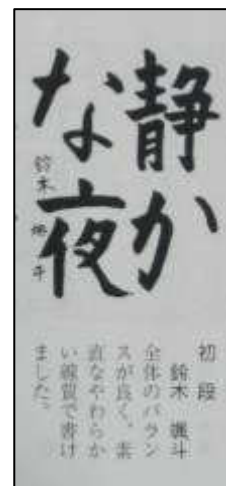 静か
な夜
鈴木 颯斗
初段
鈴木 颯斗
全体のバラン
スが良く、素
直なやわらか
い線質で書け
ました。